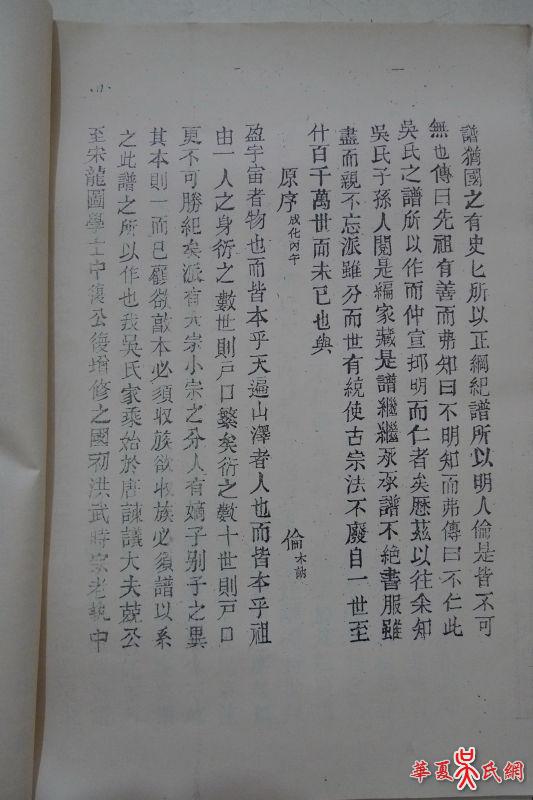 譜猶國之有史匕所以正綱紀譜所以明人倫是皆不可
無也傳曰先祖有善而弗知曰不明知而弗傳曰不仁此
吳氏之譜所以作而仲宣郑明而仁者矣歷茲以往采知
吳氏子孫人閱是編家藏是譜繼繼承承譜不絶書服雖
盡而親不忘派雖分而世有統使古宗法不廢自一世至
什百千萬世而未已也與
原序 成化丙午 倫 木訥
盈宇宙者物也而皆本乎天遍山澤者人也而皆本乎祖
由一人之身衍之數世則戸口繁矣衍之數十世則戸口
更不可勝紀矣派有大宗小宗之分人有嫡子别子之異
其本則一而已顧欲敦本必須収族欲収族必須譜以系
之此譜之所以作也我吳氏家乘始於唐諫議大夫兢公
至宋龍圖學士中復公復增修之國初洪武時宗老執中
華夏吳氏網